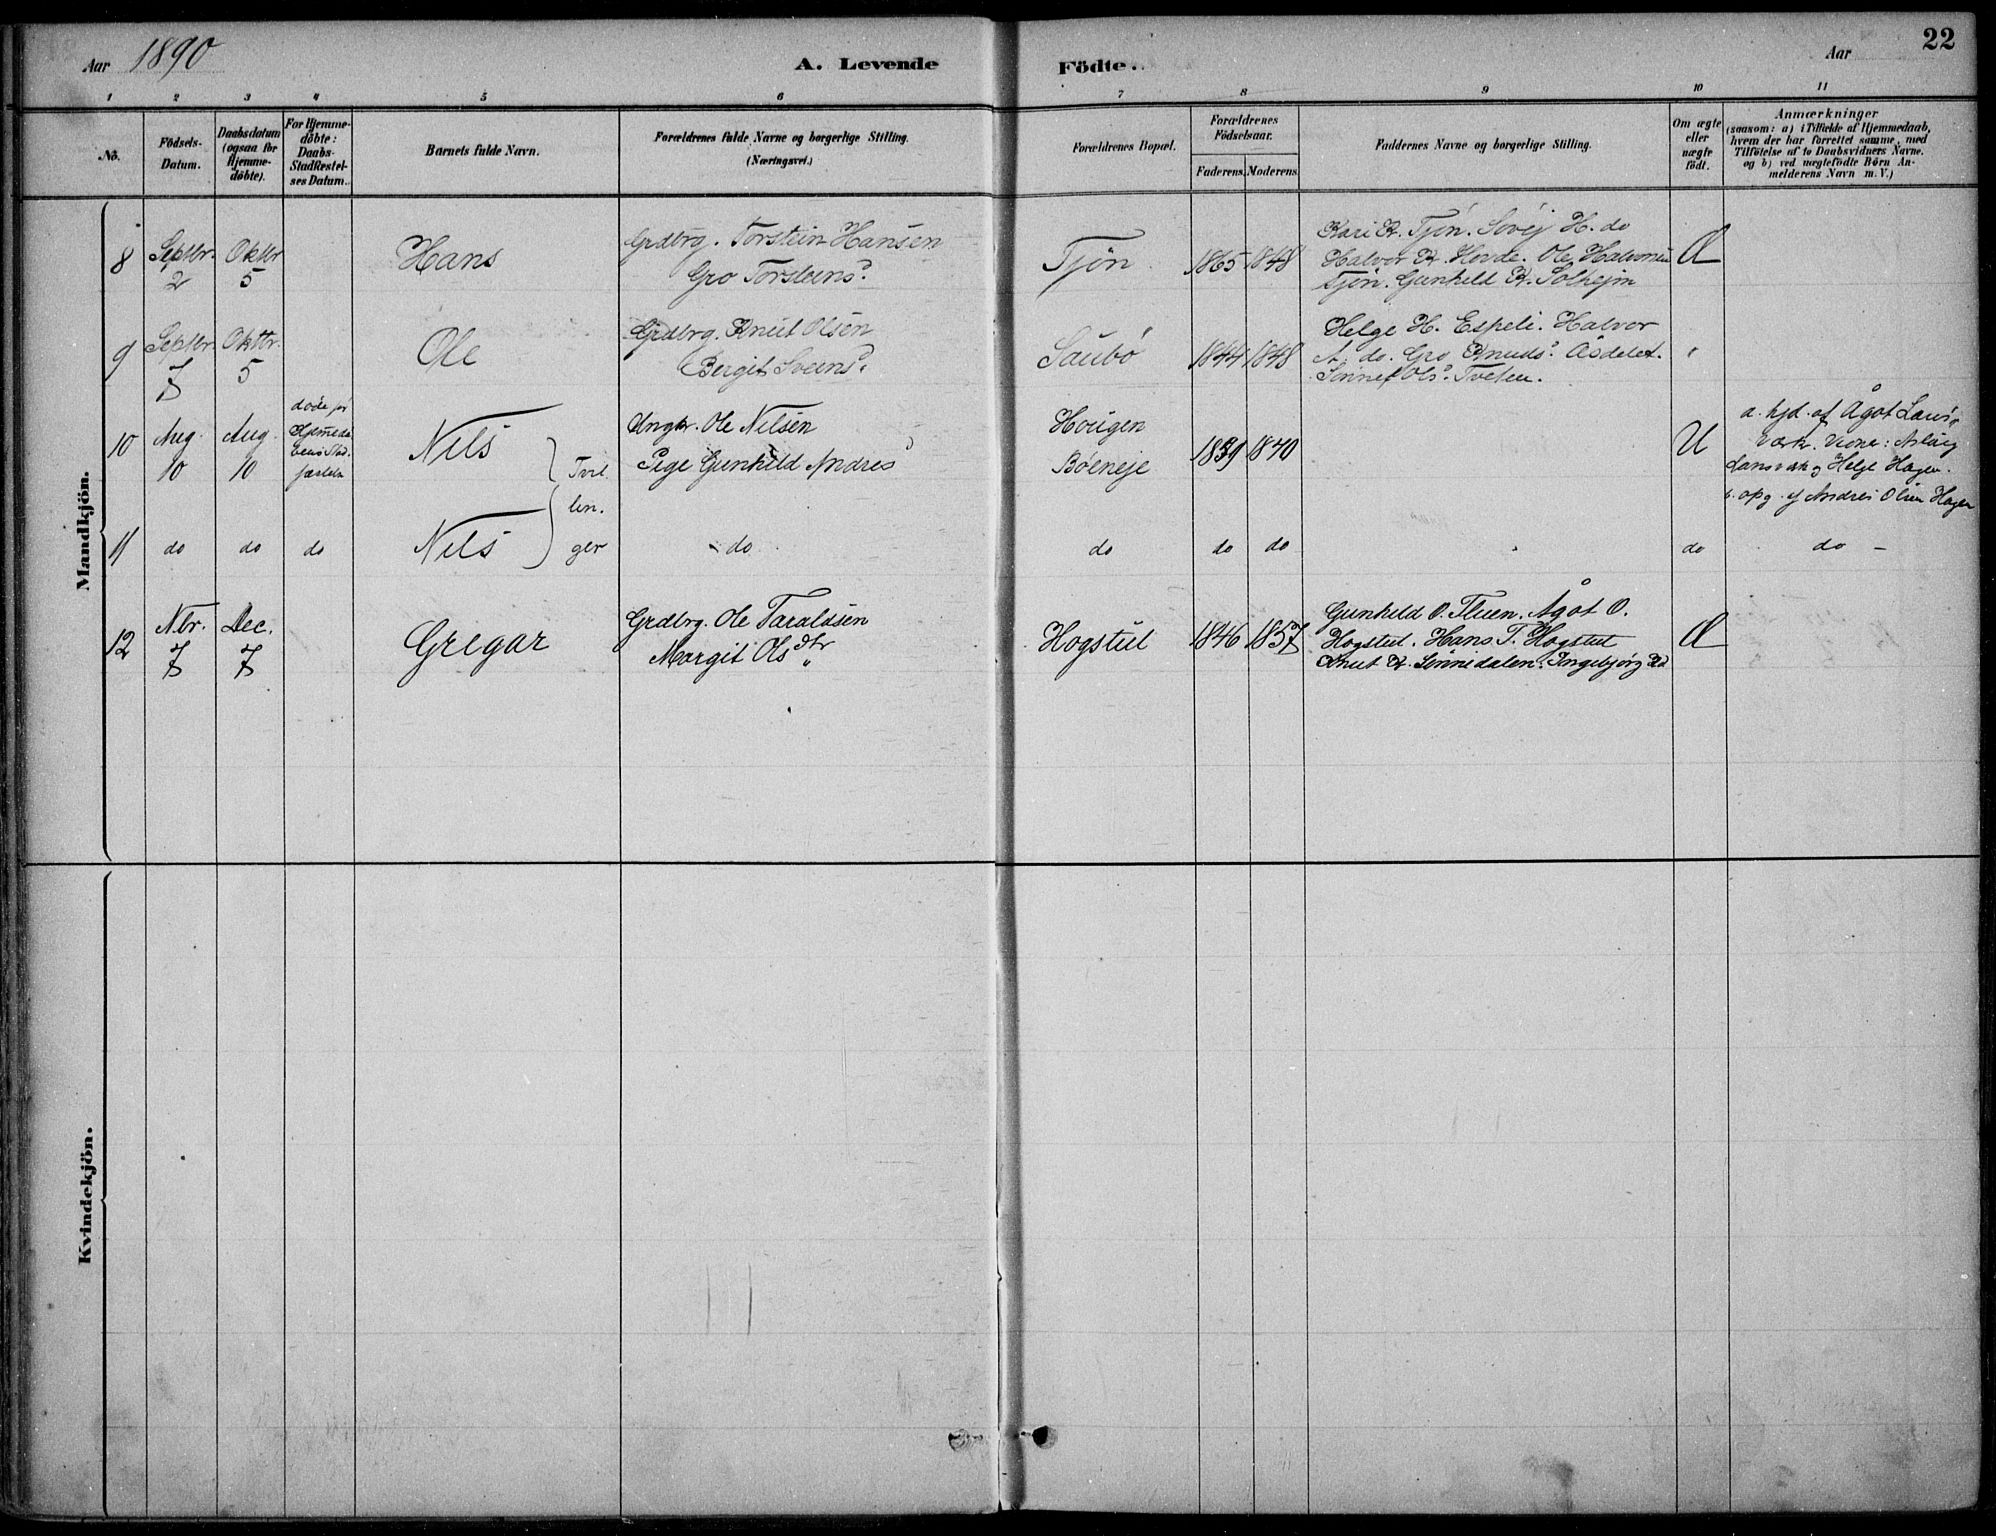 Aar 1890
A. Levende Födte.
Aar
22
1 2 3 4 5 6 7 8 9 10 11
No.
Födsels-
Datum.
Daabsdatum
(ogsaa for
Hjemme-
döbte).
For Hjemme-
döbte:
Daabs-
Stadfestel-
ses Datum.
Barnets fulde Navn.
Forældrenes fulde Navne og borgerlige Stilling.
(Næringsvei.)
Forældrenes Bopæl.
Forældrenes
Födselsaar.
Faderens. Moderens.
Faddernes Navne og borgerlige Stilling.
Om ægte
eller
uægte
födt.
Anmærkninger
(saasom: a) i Tilfælde af Hjemmedaab,
hvem der har forrettet samme, med
Tilföielse af to Daabsvidners Navne.
og b) ved uægtefödte Börn An-
melderens Navn m. V.)
Mandkjön.
8
Septbr.
2
Oktbr
5
Hans
Grdbrg. Torstein Hansen
Gro Torsteinsd.
Tjøn
1865 1848
Kari K. Tjøn. H. do
Halvor K. Hovde. Ole Halvorsen
Tjøn. Gunhild K. Solhejm
Æ
9
Septbr.
7
Oktbr.
5
Ole
Grdbrg. Knut Olsen
Bergit Sveinsd.
Saubø
1844 1848
Helge H. Espeli. Halvor
A. do. Gro Knudsd. Åsdelet.
Ols. Tveten.
"
10
Aug.
10
Aug.
10
døde før
Nils
Tvil
lin.
ger
Ungkr. Ole Nilsen
Pige Gunhild Andresd
Hougen
Bøeneje
1839 1840
U
a. hjd. af Ågot
Vidne: Aslaug
Helge Hagen.
b. opg. af Andres Olsen Hagen
11
do
do
do
Nils
do
do
do
do
do
do
12
Nbr.
7
Dec.
7
Gregar
Grdbrg. Ole Taraldsen
Margit Olsdtr
Hogstul
1846 1857
Gunhild O. Fluen. Ågot O.
Hogstul. Hans T. Hogstul
Knut K. Sønnedalen. Ingebjørg
Æ
Kvindekjön.